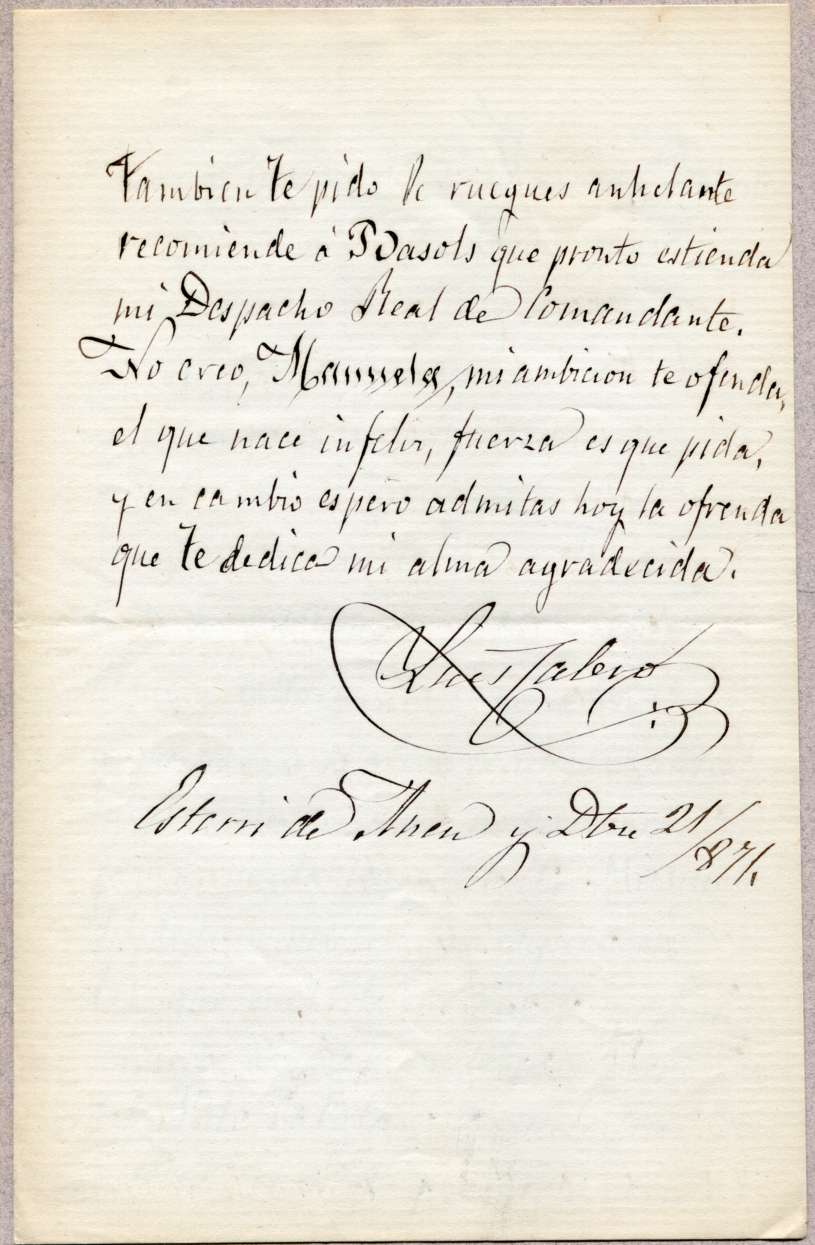 Tambien te pido le ruegues anhelante
recomiende á Basols que pronto estienda
mi Despacho Real de Comandante.
No creo, Manuela, mi ambicion te ofenda,
el que nace infeliz, fuerza es que pida,
y en cambio espero admitas hoy la ofrenda
que te dedica mi alma agradecida.
Luis Calvo
Esterri de Aneu y Dbre 21/871.